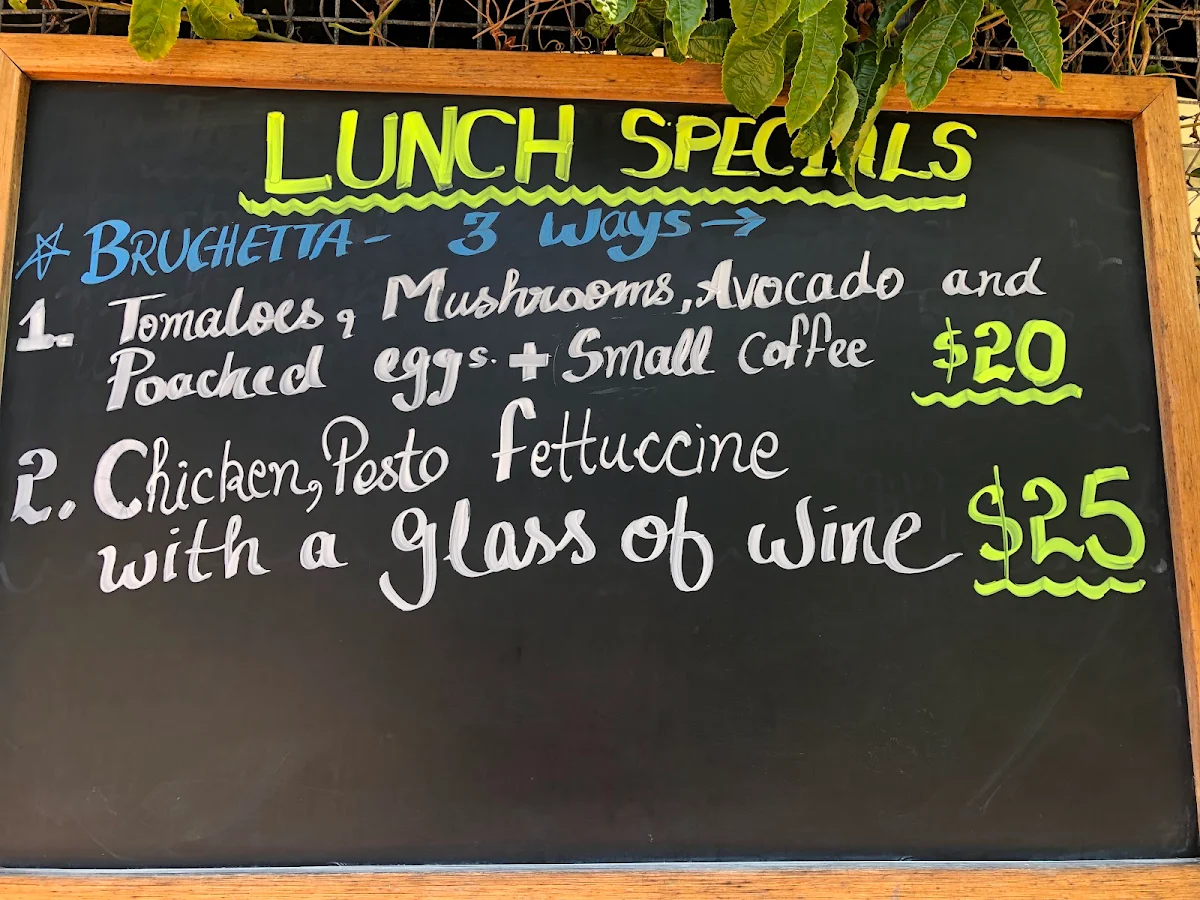 LUNCH SPECIALS
☆ BRUCHETTA - 3 Ways →
1. Tomatoes, Mushrooms, Avocado and
Poached eggs. + Small Coffee $20
2. Chicken, Pesto fettuccine
with a glass of wine $25